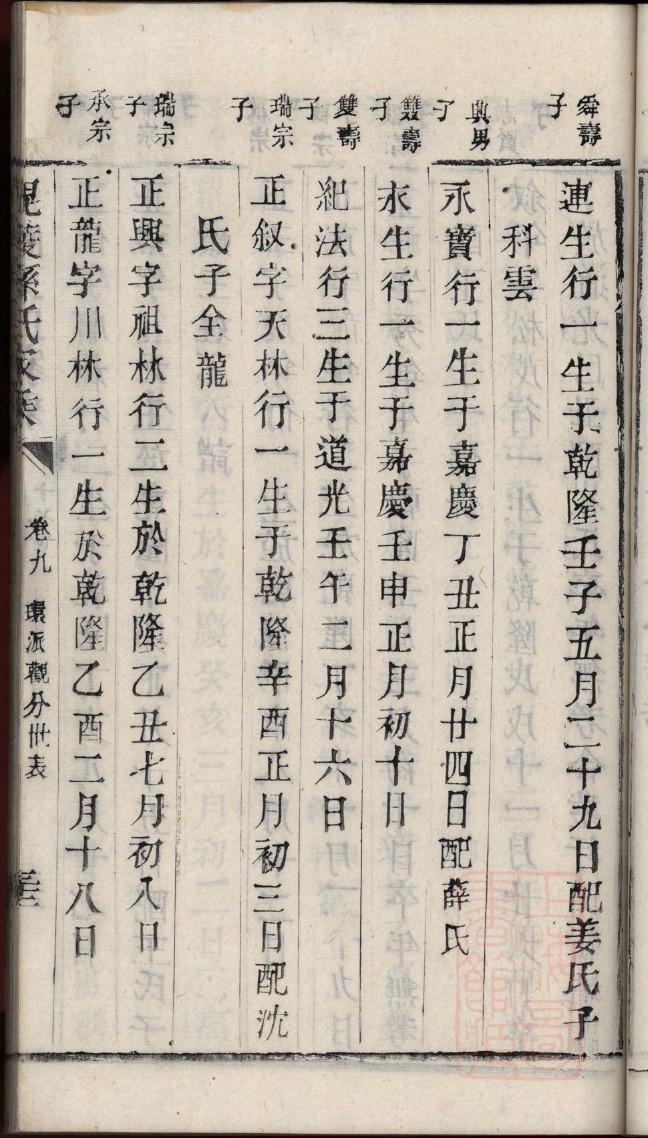 舜壽子
連生行一生于乾隆壬子五月二十九日配姜氏子
科雲
典男子
永寶行一生于嘉慶丁丑正月廿四日配薛氏
雙壽子
永生行一生于嘉慶壬申正月初十日
雙壽子
紀法行三生于道光壬午二月十六日
瑞宗子
正叙字天林行一生于乾隆辛酉正月初三日配沈
氏子全龍
瑞宗子
正興字祖林行二生於乾隆乙丑七月初八日
承宗子
正龍字川林行一生於乾隆乙酉二月十八日
毘陵孫氏家乘
卷九 環派觀分世表